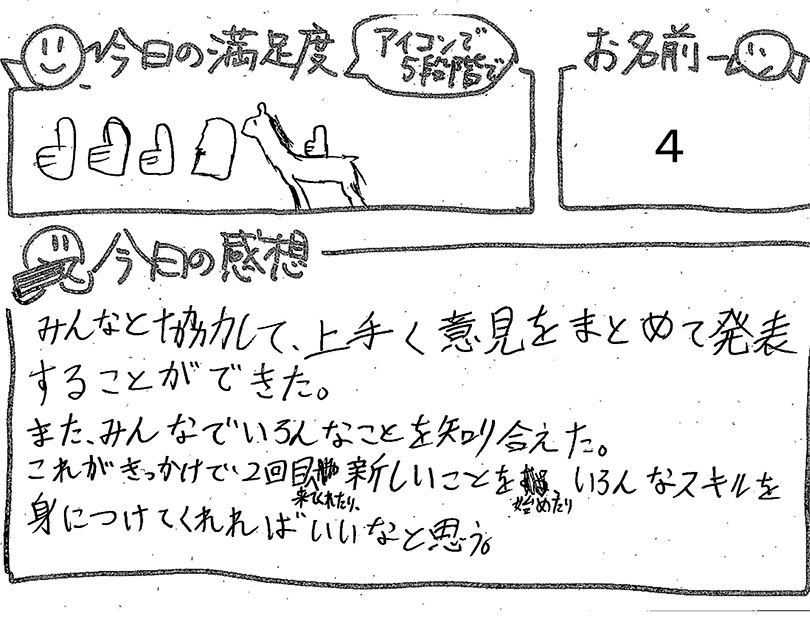 今日の満足度
アイコンで
5段階で
お名前
4
今日の感想
みんなと協力して、上手く意見をまとめて発表
することができた。
また、みんなでいろんなことを知り合えた。
これがきっかけで、2回目へ新しいことを いろんなスキルを
来てくれたり、
始めたり
身につけてくれればいいなと思う。